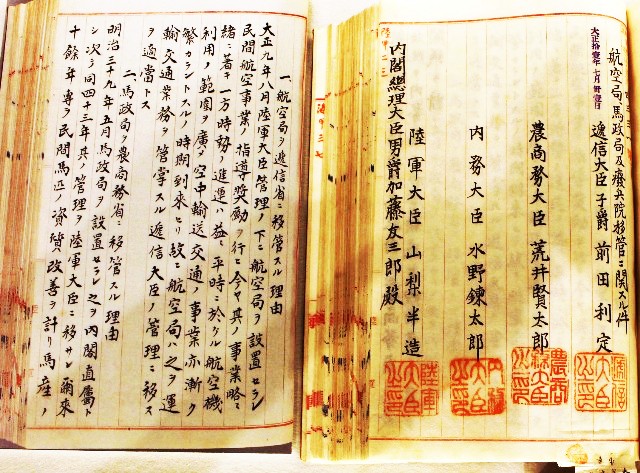 航空局、馬政局及癈兵院移管ニ関スル件
大正拾壹年七月卅壹日
逓信大臣子爵前田利定
農商務大臣荒井賢太郎
内務大臣水野錬太郎
陸軍大臣山梨半造
内閣總理大臣男爵加藤友三郎殿
一、航空局ヲ逓信省ニ移管スル理由
大正九年八月陸軍大臣管理ノ下ニ航空局ヲ設置セラレ
民間航空事業ノ指導奨勵ヲ行ヒ今ヤ其ノ事業略ニ
緒ニ著キ一方時勢ノ進運ハ益ニ平時ニ於ケル航空機
利用ノ範圍ヲ廣メ空中輸送交通ノ事業亦漸ク
繁カラントスルノ時期到来セリ故ニ航空局ハ之ヲ運
輸交通業務ヲ管掌スル逓信大臣ノ管理ニ移ス
ヲ適當トス
二、馬政局ヲ農商務省ニ移管スル理由
明治三十九年五月馬政局ヲ設置セラレ之ヲ内閣直屬ト
シ次テ同四十三年其ノ管理ヲ陸軍大臣ニ移サレ爾来
十餘年専ヲ民間馬匹ノ資質改善ヲ計リ馬産ノ